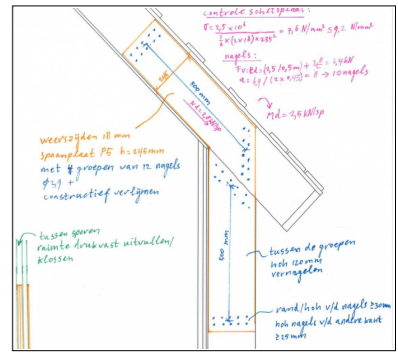 controle schetsplaat:
σ = 2,5 × 10⁶ / ⅙ × (2×18) × 245² = 7,6 N/mm² ≤ 9,2 N/mm²
nagels:
Fv;Ed = (2,5/0,5m) +
→ 10 nagels
Md = 2,5 kN/sp
245
500 mm
weerszijden 18 mm
spaanplaat P5 h=245mm
met 4 groepen van 12 nagels
+
constructief verlijmen
tussen sporen
ruimte drukvast uitvullen/
klossen
500 mm
tussen de groepen
hoh 120mm
vernagelen
rand/hoh v/d nagels ≥30mm
hoh nagels v/d andere kant
≥25mm